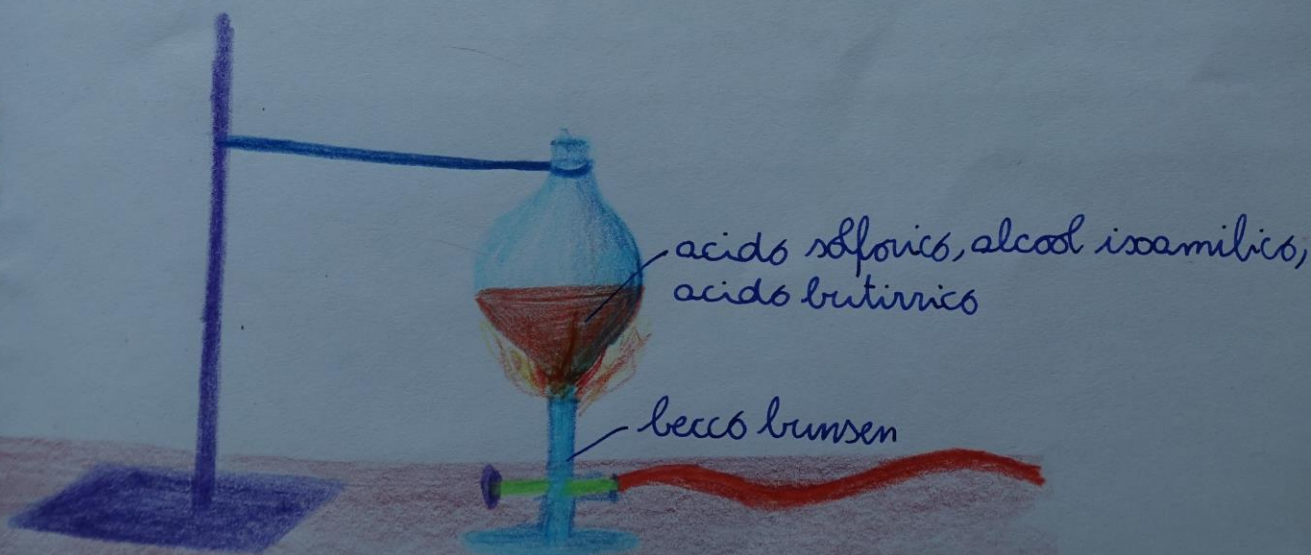 acido solforico, alcool isoamilico,
acido butirrico
becco bunsen